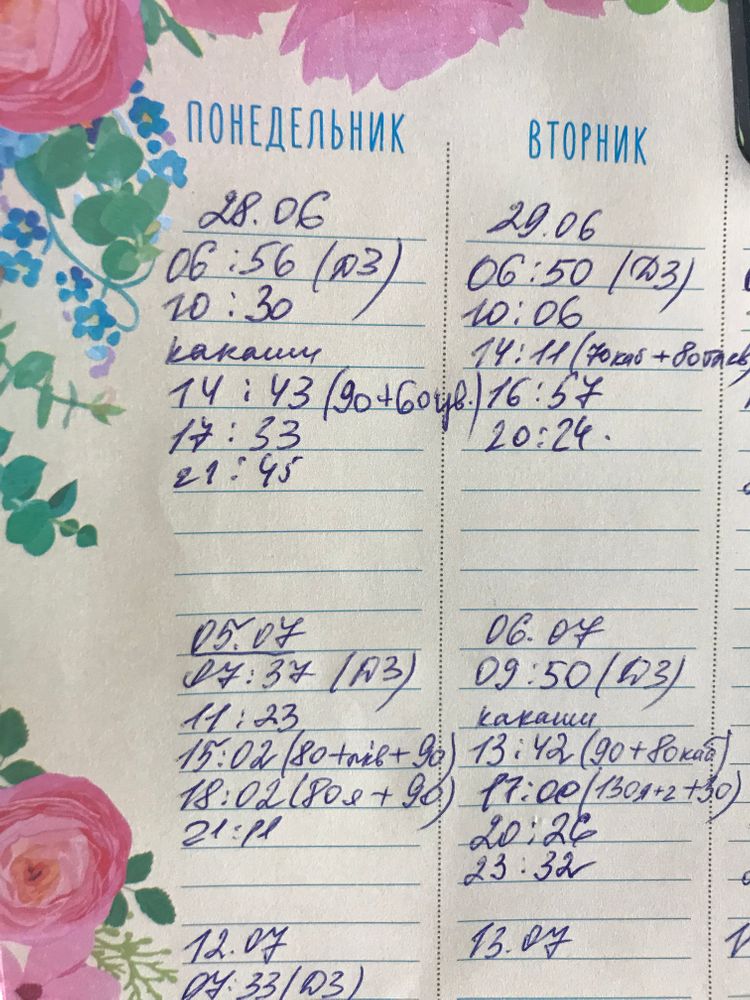 ПОНЕДЕЛЬНИК
28.06
06:56 (ДЗ)
10:30
какаши
14:43 (90+60цв.)
17:33
21:45
05.07
07:37 (ДЗ)
11:23
15:02 (80+ + 90)
18:02 (80я + 90)
21:11
12.07
07:33 (ДЗ)
ВТОРНИК
29.06
06:50 (ДЗ)
10:06
14:11 (70каб + 80
16:57
20:24.
06.07
09:50 (ДЗ)
какаши
13:42 (90+80каб)
17:00 (130я+г+30)
20:26
23:32
13.07